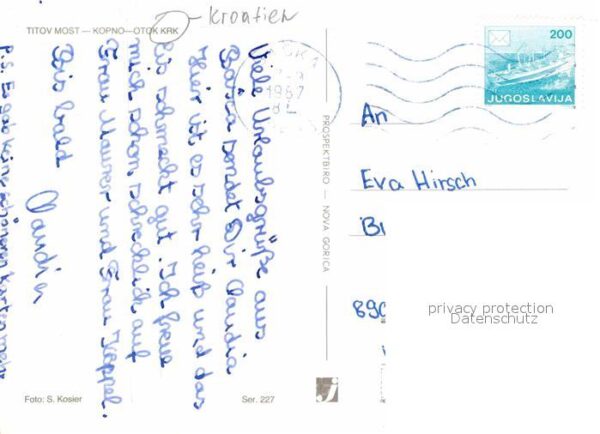 Kroatien
TITOV MOST — KOPNO—OTOK KRK
Viele Urlaubsgrüße aus
Baška sendet Dir Claudia
Hier ist es sehr heiß und das
Eis schmeckt gut. Ich freue
mich schon schrecklich auf
Frau Maurer und Frau Koppel.
Bis bald
Claudia
P.S. Es gab keine schöneren Karten mehr
Foto: S. Kosier
Ser. 227
PROSPEKTBIRO — NOVA GORICA
1987
200
JUGOSLAVIJA
An
Eva Hirsch
890
privacy protection
Datenschutz